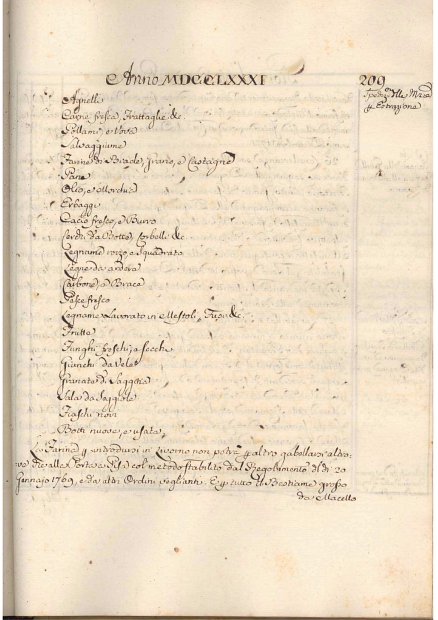 Anno MDCCLXXXI
209
Agnelli
Carne fresca, Frattaglie &c.
Pollami, e Uova
Salvaggiume
Farine di Biade, Grano, e Castagne
Pane
Olio, e Morchia
Erbaggi
Cacio fresco, e Burro
Cerchi da Botte, Corbelli &c.
Legname rozzo e Squadrato
Legne da ardere
Carbone, e Brace
Pesce fresco
Legname Lavorato in Mestoli, Fusa &c.
Frutte
Funghi freschi, e secchi
Giunchi da
Granate di Saggina
Sala da Seggiole
Fiaschi
Botti nuove, e usate
Le Farine p introdursi in Livorno non potrà p altro gabellarsi altro-
ve che alle Porte a Pisa col metodo stabilito dal Regolamento de dì 20
Gennajo 1769, e da altri Ordini veglianti. E p tutto il Bestiame grosso
da Macello